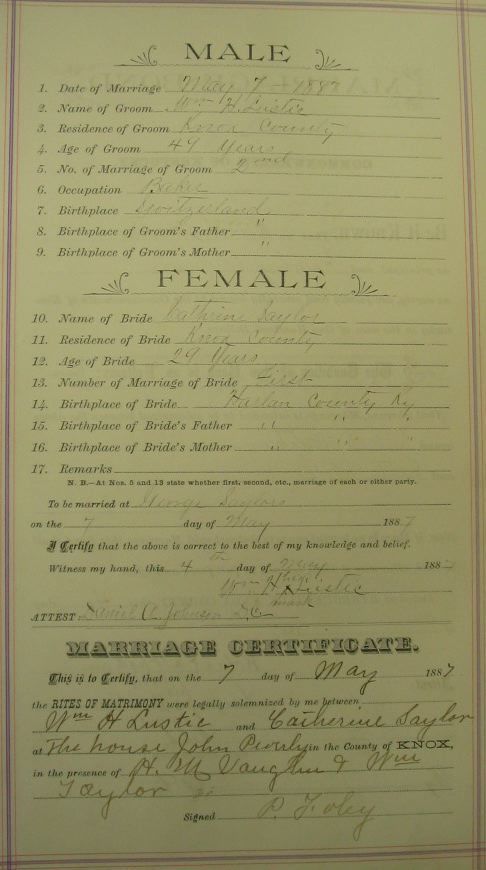 MALE
1. Date of Marriage May 7 - 1887
2. Name of Groom Wm H. Lustie
3. Residence of Groom Knox County
4. Age of Groom 47 Years
5. No. of Marriage of Groom 2nd
6. Occupation Baker
7. Birthplace Switzerland
8. Birthplace of Groom's Father "
9. Birthplace of Groom's Mother "
FEMALE
10. Name of Bride Cathrine Saylor
11. Residence of Bride Knox County
12. Age of Bride 29 Years
13. Number of Marriage of Bride First
14. Birthplace of Bride Harlan County Ky
15. Birthplace of Bride's Father " " "
16. Birthplace of Bride's Mother " " "
17. Remarks
N. B.—At Nos. 5 and 13 state whether first, second, etc., marriage of each or either party.
To be married at George Saylors
on the 7 day of May 1887
I Certify that the above is correct to the best of my knowledge and belief.
Witness my hand, this 4th day of May 188
Wm H his Lustie
mark
ATTEST Daniel C. Johnson D.C.
MARRIAGE CERTIFICATE.
This is to Certify, that on the 7 day of May 1887
the RITES OF MATRIMONY were legally solemnized by me between
Wm H Lustie and Catherine Saylor
at The house John in the County of KNOX,
in the presence of H. M Vaughn & Wm
Taylor
Signed P. Foley